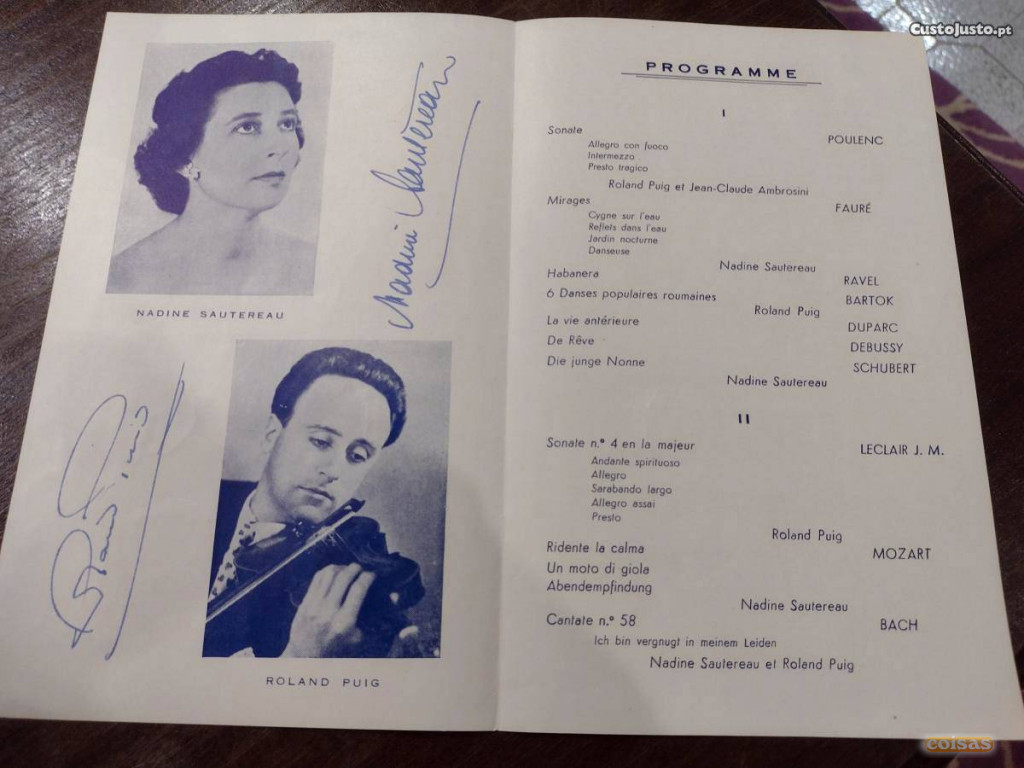 CustoJusto.pt
NADINE SAUTEREAU
Nadine Sautereau
Roland Puig
ROLAND PUIG
PROGRAMME
I
Sonate POULENC
Allegro con fuoco
Intermezzo
Presto tragico
Roland Puig et Jean-Claude Ambrosini
Mirages FAURÉ
Cygne sur l'eau
Reflets dans l'eau
Jardin nocturne
Danseuse
Nadine Sautereau
Habanera RAVEL
6 Danses populaires roumaines BARTOK
Roland Puig
La vie antérieure DUPARC
De Rêve DEBUSSY
Die junge Nonne SCHUBERT
Nadine Sautereau
II
Sonate n.º 4 en la majeur LECLAIR J. M.
Andante spirituoso
Allegro
Sarabando largo
Allegro assai
Presto
Roland Puig
Ridente la calma MOZART
Un moto di giola
Abendempfindung
Nadine Sautereau
Cantate n.º 58 BACH
Ich bin vergnugt in meinem Leiden
Nadine Sautereau et Roland Puig
coisas